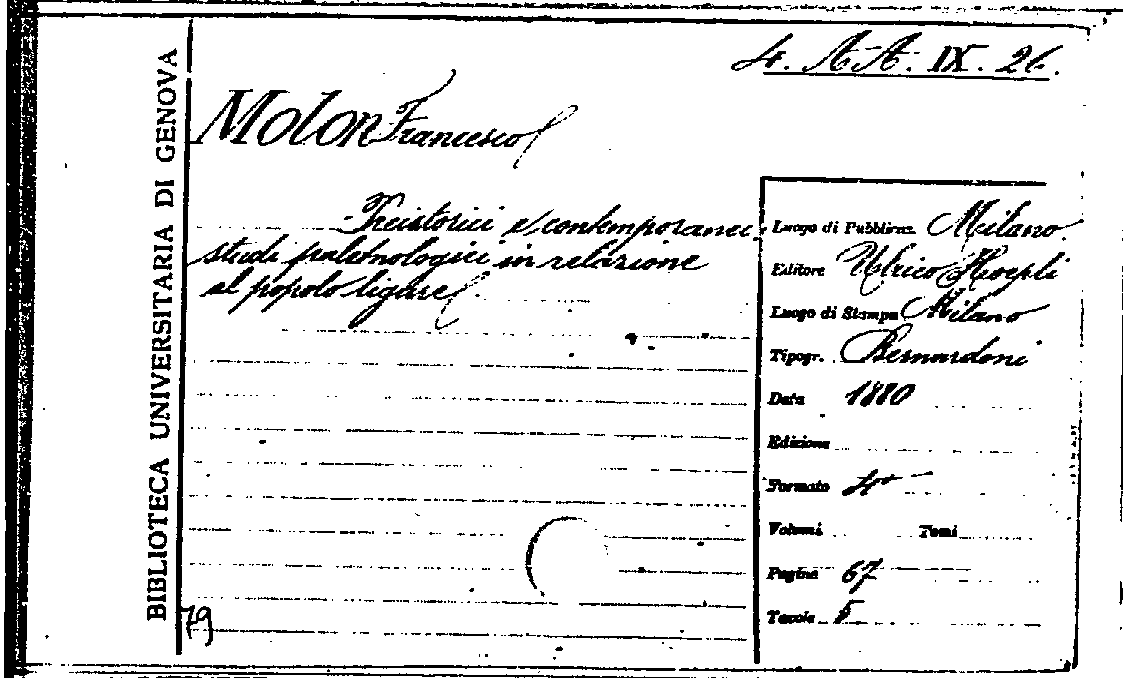 4. A. A. IX. 26.
BIBLIOTECA UNIVERSITARIA DI GENOVA
Molon Francesco
Preistorici e contemporanei
studi paletnologici in relazione
al popolo ligure
Luogo di Pubblicaz. Milano
Editore Ulrico Hoepli
Luogo di Stampa Milano
Tipogr. Bernardoni
Data 1880
Edizione
Formato 4º
Volumi Tomi
Pagine 67
Tavole 5
79